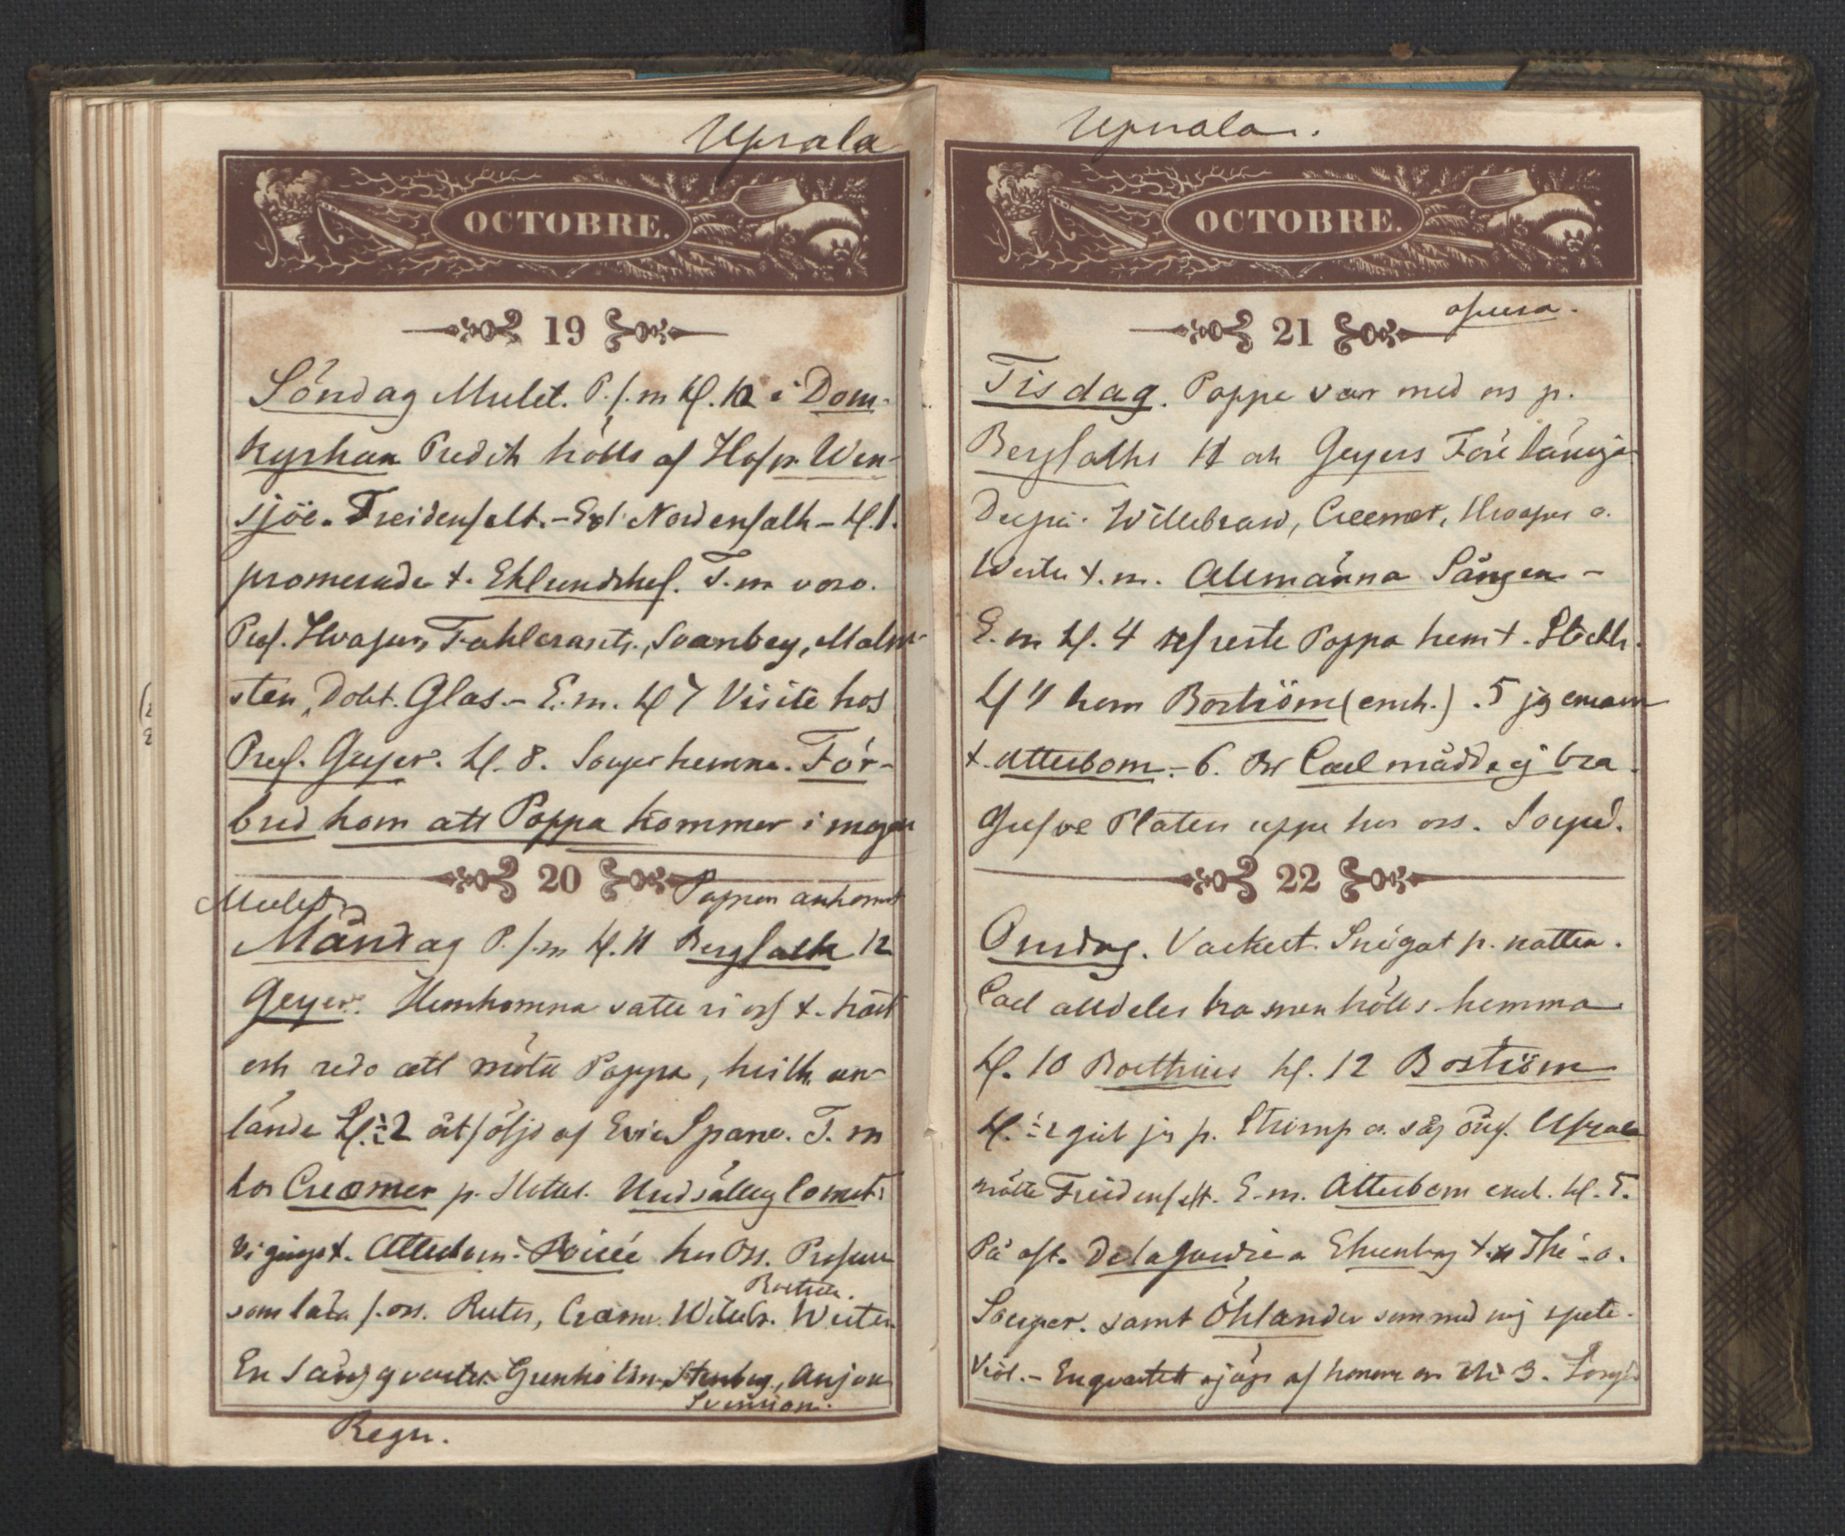 Upsala
OCTOBRE.
19
Söndag Mulet. P. f.m Kl. 10 i Dom-
kyrkan Predik hölls af Hofpr Win-
sjöe. Freidenfelt. - Ext Nordenfalk - Kl. 1.
promenade t. Eklundshof. T.m voro.
Prof. Hvasser, Fahlcrantz, Svanberg, Malm-
sten, Dokt. Glas. - E.m. Kl 7 Visite hos
Prof. Geyer. Kl. 8. Souper hemma. För-
bud kom att Pappa kommer i morgon
20
Pappas ankomst
Mulet
Måndag P. f.m Kl. 11 Bergfalk 12
Geyer. Hemkomna satte vi oss t. rätt
och redo att möta Pappa, hvilk. an-
lände Kl. ½2 åtföljd af Eric Sparre. T. m
hos Creæmer p. Slottet.
Vi gingo t. Atterbom. Soirée hos Oss. Professor
Boethius.
som läsa f. oss. Ruter, Cræmer. Willebr. Wester
En sångqvartett Grenholm, Stenberg, Anjou
Svensson.
Regn.
Upsala.
OCTOBRE.
21
opera.
Tisdag. Pappa var med oss p.
Bergfalks 11 och Geyers Föreläsning
Willebrand, Creemer, Hvasser o.
Wester t. m. Allmänna Sången -
E. m Kl. 4 afreste Pappa hem t. Stockh.
Kl 4 kom Boström (ensk.) . 5 jg ensam
t. Atterbom. - 6. Br Carl mådde ej bra.
Gustve Platen uppe hos oss. Souped.
22
Onsdag. Vackert. Snögat p. natten.
Carl alldeles bra men hölls hemma
Kl. 10 Boethius Kl. 12 Boström
Kl. ½2 gick jg p. Strömp o. såg Ångf. Upsala
mötte Freidenfelt. E. m. Atterbom ensk. Kl. 5.
På aft. Delagardie o Ehrenborg t. Thé o.
Souper. samt Öhlander som med mig spelte
Viol. - En qvartett af honom